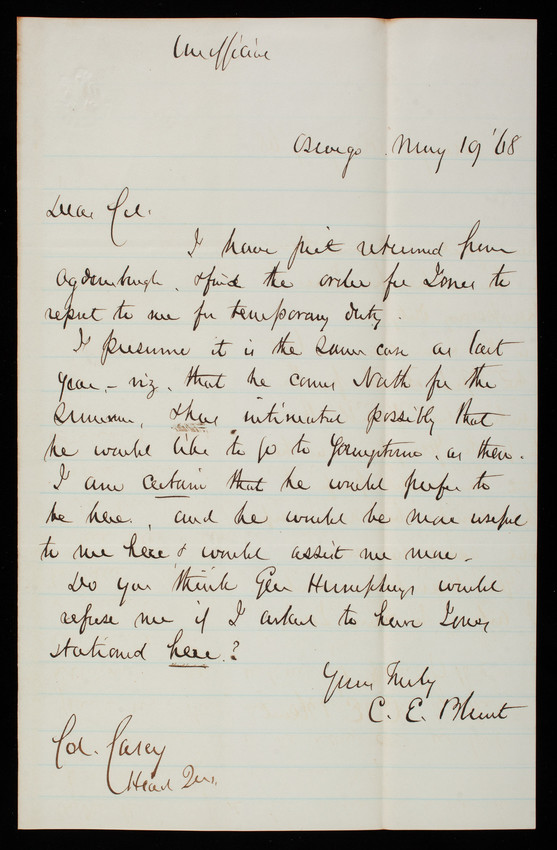 Unofficial
Oswego May 19 '68
Dear Col.
I have just returned from
Ogdensburgh, & find the order for Jones to
report to me for temporary duty.
I presume it is the same case as last
year, - viz. that he comes North for the
summer, & has intimated possibly that
he would like to go to Youngstown, as then.
I am certain that he would prefer to
be here, and he would be more useful
to me here & would assist me more -
Do you think Gen Humphreys would
refuse me if I asked to have Jones
stationed here?
Yours Truly
C. E. Blunt
Col. Casey
Head Qrs.